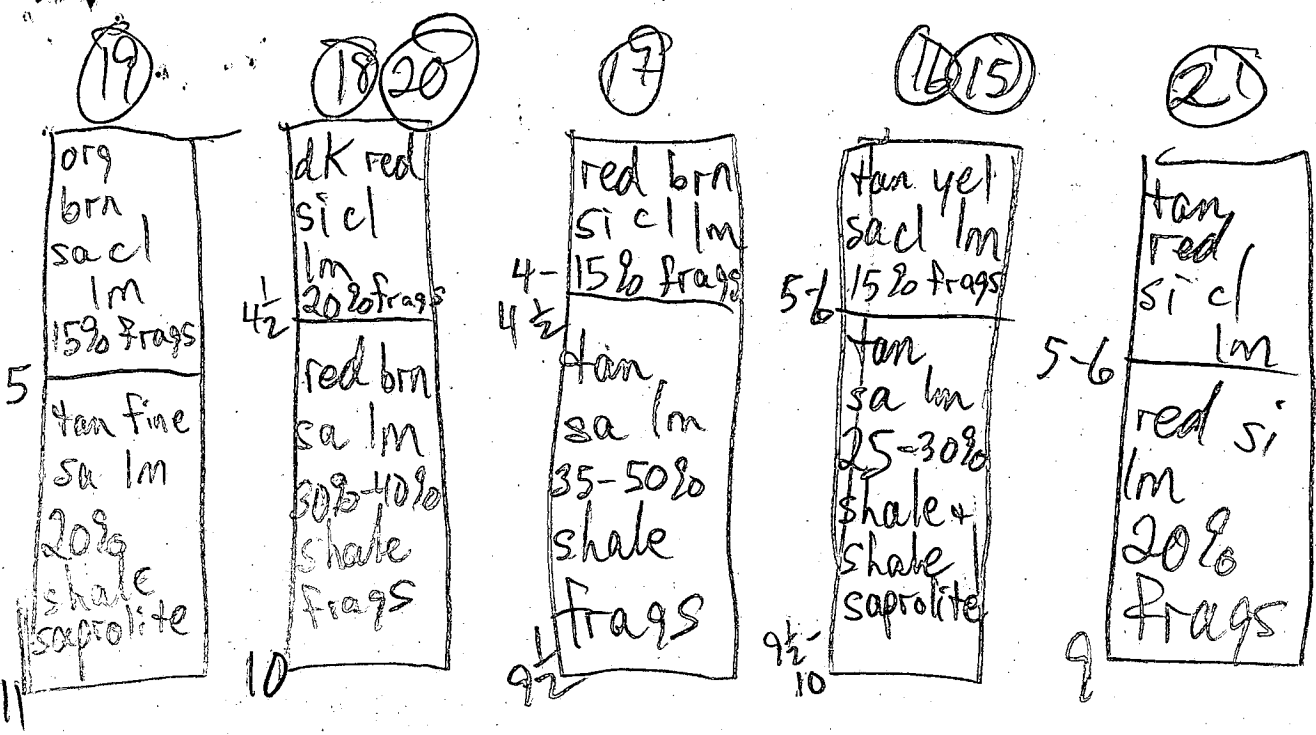 19
org
brn
sa cl
lm
15% frags
5
tan fine
sa lm
20%
shale
saprolite
11
18 20
dk red
si cl
lm
20% frags
4 1/2
red brn
sa lm
30%-40%
shale
frags
10
17
red brn
si cl lm
15% frags
4-
4 1/2
tan
sa lm
35-50%
shale
frags
9 1/2
16 15
tan yel
sa cl lm
15% frags
5-6
tan
sa lm
25-30%
shale +
shale
saprolite
9 1/2-
10
21
tan
red
si cl
lm
5-6
red si
lm
20%
frags
9